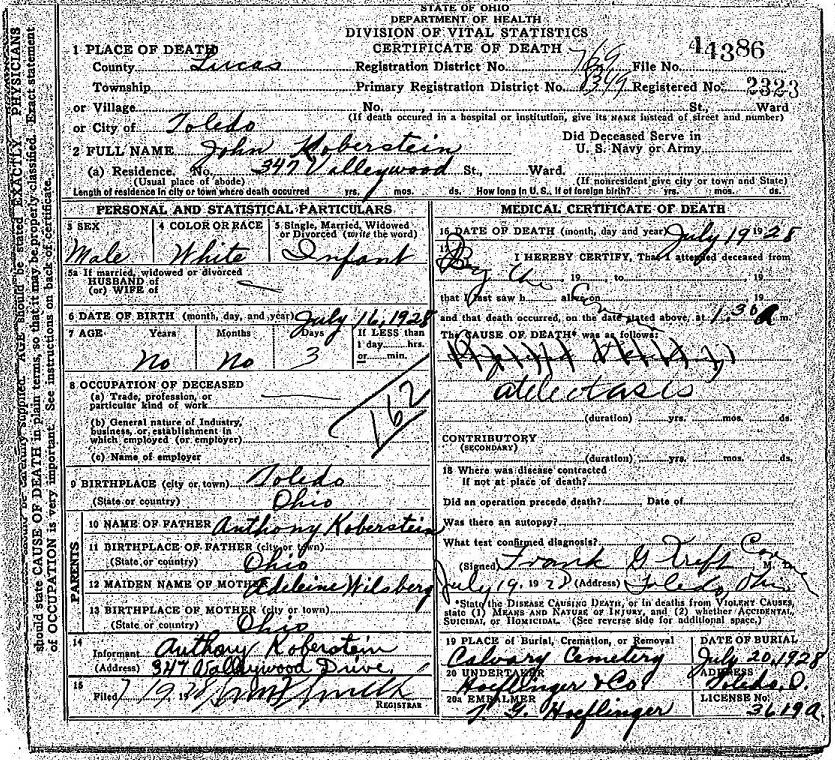 STATE OF OHIO
DEPARTMENT OF HEALTH
DIVISION OF VITAL STATISTICS
CERTIFICATE OF DEATH
1 PLACE OF DEATH
County Lucas Registration District No. 769 File No. 44386
Township Primary Registration District No. 8349 Registered No. 2323
or Village No. St., Ward
(If death occured in a hospital or institution, give its NAME instead of street and number)
or City of Toledo
Did Deceased Serve in
U. S. Navy or Army
2 FULL NAME John Koberstein
(a) Residence. No. 347 Valleywood St., Ward.
(Usual place of abode) (If nonresident give city or town and State)
Length of residence in city or town where death occurred yrs. mos. ds. How long in U. S., if of foreign birth? yrs. mos. ds.
PERSONAL AND STATISTICAL PARTICULARS
3 SEX 4 COLOR OR RACE 5 Single, Married, Widowed
or Divorced (write the word)
Male White Infant
5a If married, widowed or divorced
HUSBAND of
(or) WIFE of
6 DATE OF BIRTH (month, day, and year) July 16, 1928
7 AGE Years Months Days If LESS than
1 day, hrs.
or min.
No No 3
8 OCCUPATION OF DECEASED
(a) Trade, profession, or
particular kind of work
162
(b) General nature of Industry,
business, or establishment in
which employed (or employer)
(c) Name of employer
9 BIRTHPLACE (city or town) Toledo
(State or country) Ohio
PARENTS
10 NAME OF FATHER Anthony Koberstein
11 BIRTHPLACE OF FATHER (city or town)
(State or country) Ohio
12 MAIDEN NAME OF MOTHER Adeleine Wilsberg
13 BIRTHPLACE OF MOTHER (city or town)
(State or country) Ohio
14
Informant Anthony Koberstein
(Address) 347 Valleywood Drive
15
Filed 7/19, 1928
REGISTRAR
MEDICAL CERTIFICATE OF DEATH
16 DATE OF DEATH (month, day and year) July 19 1928
17
I HEREBY CERTIFY, That I attended deceased from
By the 19 , to 19
that I last saw h alive on 19
and that death occurred, on the date stated above, at 1.30 a m.
The CAUSE OF DEATH* was as follows:
atelectasis
(duration) yrs. mos. ds.
CONTRIBUTORY
(SECONDARY)
(duration) yrs. mos. ds.
18 Where was disease contracted
If not at place of death?
Did an operation precede death? Date of
Was there an autopsy?
What test confirmed diagnosis?
(Signed) Frank G Kreft M.
July 19, 1928 (Address) Toledo, Ohio
*State the DISEASE CAUSING DEATH, or in deaths from VIOLENT CAUSES,
state (1) MEANS AND NATURE OF INJURY, and (2) whether ACCIDENTAL,
SUICIDAL, or HOMICIDAL. (See reverse side for additional space.)
19 PLACE of Burial, Cremation, or Removal DATE OF BURIAL
Calvary Cemetery July 20, 1928
20 UNDERTAKER ADDRESS
Hoeflinger & Co. Toledo, O.
20a EMBALMER LICENSE No.
Hoeflinger 3619a
should state CAUSE OF DEATH in plain terms, so that it may be properly classified. Exact statement
of OCCUPATION is very important. See instructions on back of certificate.